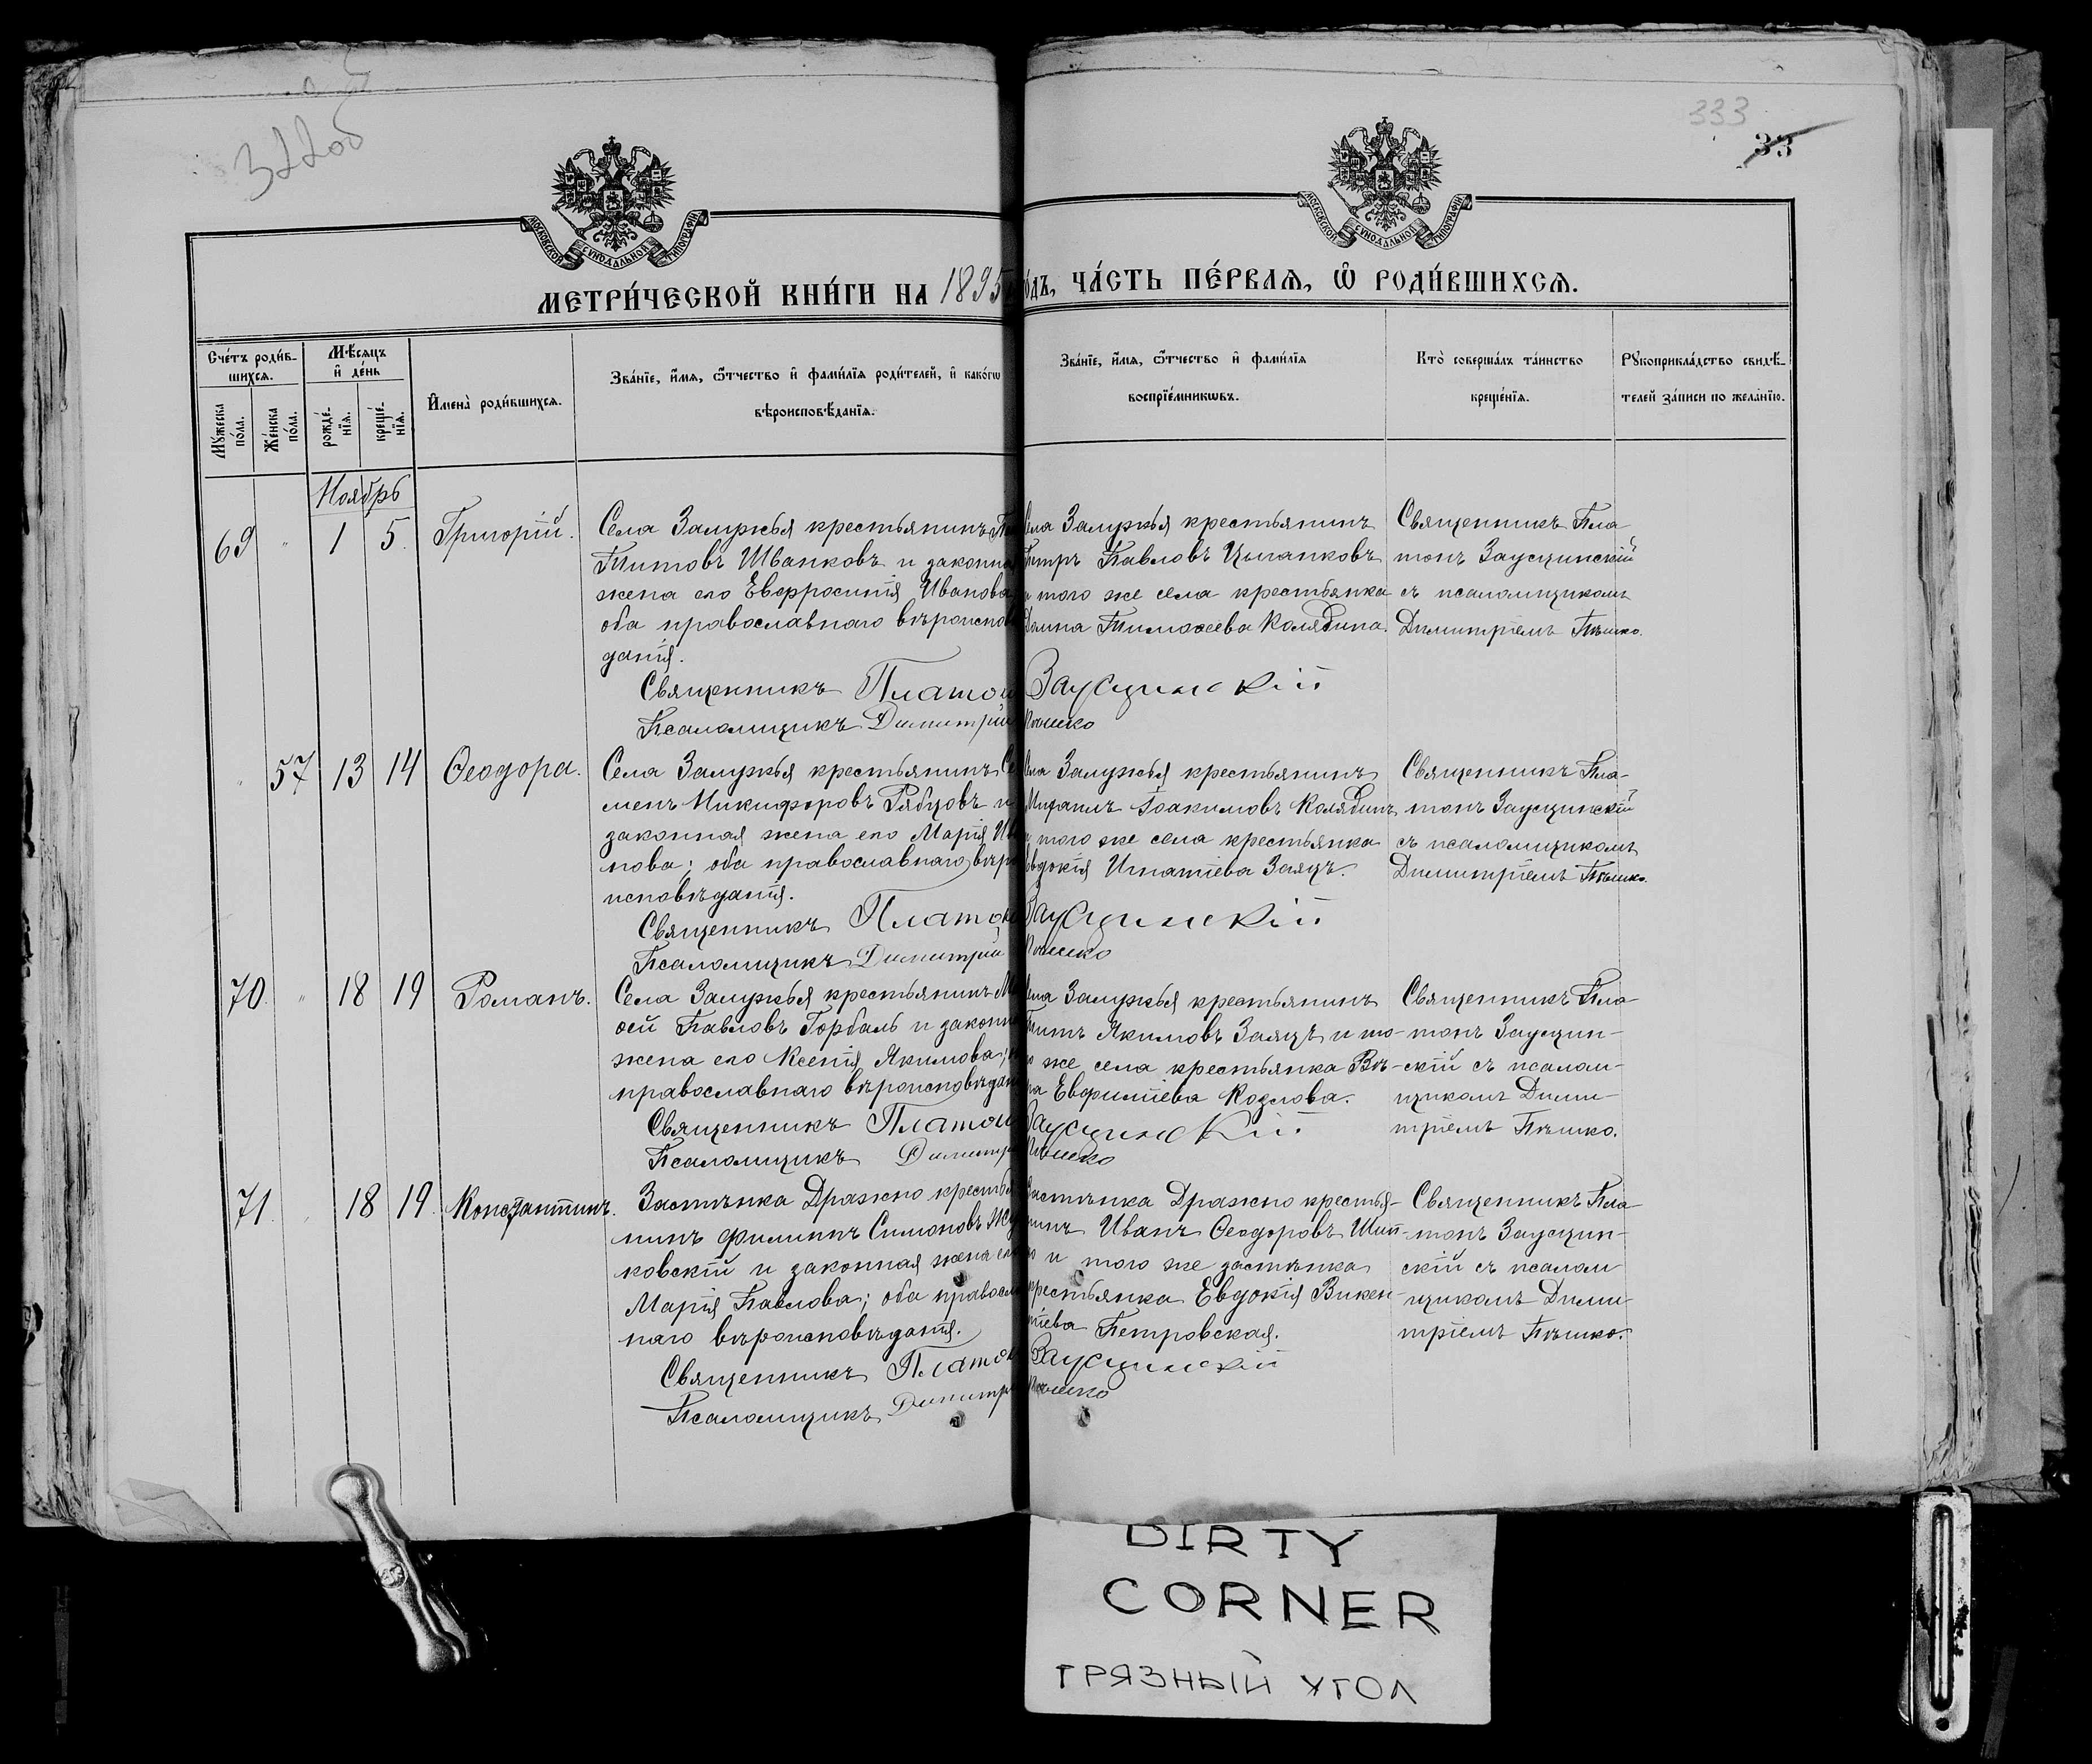 322об
333
33
МОСКОВСКОЙ СѴНОДАЛЬНОЙ ТИПОГРАФІИ
МОСКОВСКОЙ СѴНОДАЛЬНОЙ ТИПОГРАФІИ
МЕТРИ́ЧЕСКОЙ КНИ́ГИ НА 1895
о́дъ, ЧА́СТЬ ПЕ́РВАѦ, Ѽ РОДИ́ВШИХСѦ.
Сче́тъ роди́в-
шихсѧ.
Мѣ́сѧцъ
и҆ де́нь
Мꙋ́жеска
по́ла.
Же́нска
по́ла.
рожде́-
нїѧ.
креще́-
нїѧ.
И҆мена̀ роди́вшихсѧ.
Зва́нїе, и҆́мѧ, ѻ҆́тчество и҆ фами́лїѧ роди́телей, и҆ како́гѡ
вѣроисповѣ́данїѧ.
Зва́нїе, и҆́мѧ, ѻ҆́тчество и҆ фами́лїѧ
воспрїе́мникѡвъ.
Кто̀ соверша́лъ та́инство
креще́нїѧ.
Рꙋкоприкла́дство свидѣ́-
телей за́писи по жела́нїю.
Ноябрь
69 " 1 5. Григорій.
Села Залужья крестьянинъ
Титовъ Шванковъ и законна
жена его Евфросинія Иванова
оба православнаго вѣроиспов
данія.
Священникъ Платон
Псаломщикъ Димитрій
ела Залужья крестьянинъ
Петръ Павловъ Цыганковъ
и того же села крестьянка
Домна Тимоѳеева Колядина.
Заусцинскій
Пѣшко
Священникъ Пла-
тонъ Заусцинскій
съ псаломщикомъ
Димитріемъ Пѣшко.
" 57 13 14 Ѳеодора.
Села Залужья крестьянинъ Се
менъ Никифоровъ Рябцовъ и
законная жена его Марія Ив
нова; оба православнаго вѣро
исповѣданія.
Священникъ Платон
Псаломщикъ Димитрій
ела Залужья крестьянинъ
Михаилъ Іоакимовъ Колядинъ
и того же села крестьянка
Евдокія Игнатіева Заяцъ.
Заусцинскій
Пѣшко
Священникъ Пла-
тонъ Заусцинскій
съ псаломщикомъ
Димитріемъ Пѣшко.
70. " 18 19 Романъ.
Села Залужья крестьянинъ Мо
сей Павловъ Горбаль и законн
жена его Ксенія Якимова;
православнаго вѣроисповѣдан
Священникъ Платон
Псаломщикъ Димитр
ела Залужья крестьянинъ
Титъ Якимовъ Заяцъ и то-
го же села крестьянка Вѣ-
ра Евфиміева Козлова.
Заусцинскій
Пѣшко
Священникъ Пла-
тонъ Заусцин-
скій съ псалом-
щикомъ Дими-
тріемъ Пѣшко.
71. 18 19. Константинъ.
Застѣнка Дражно крестья
нинъ Филиппъ Симоновъ Жу
ковскій и законная жена его
Марія Павлова; оба правосл
наго вѣроисповѣданія.
Священникъ Платон
Псаломщикъ Димитр
Застѣнка Дражно крестья-
нинъ Иванъ Ѳеодоровъ
и того же застѣнка
крестьянка Евдокія Викен-
тіева Петровская.
Заусцинскій
Пѣшко
Священникъ Пла-
тонъ Заусцин-
скій съ псалом
щикомъ Дими-
тріемъ Пѣшко.
DIRTY
CORNER
ГРЯЗНЫЙ УГОЛ